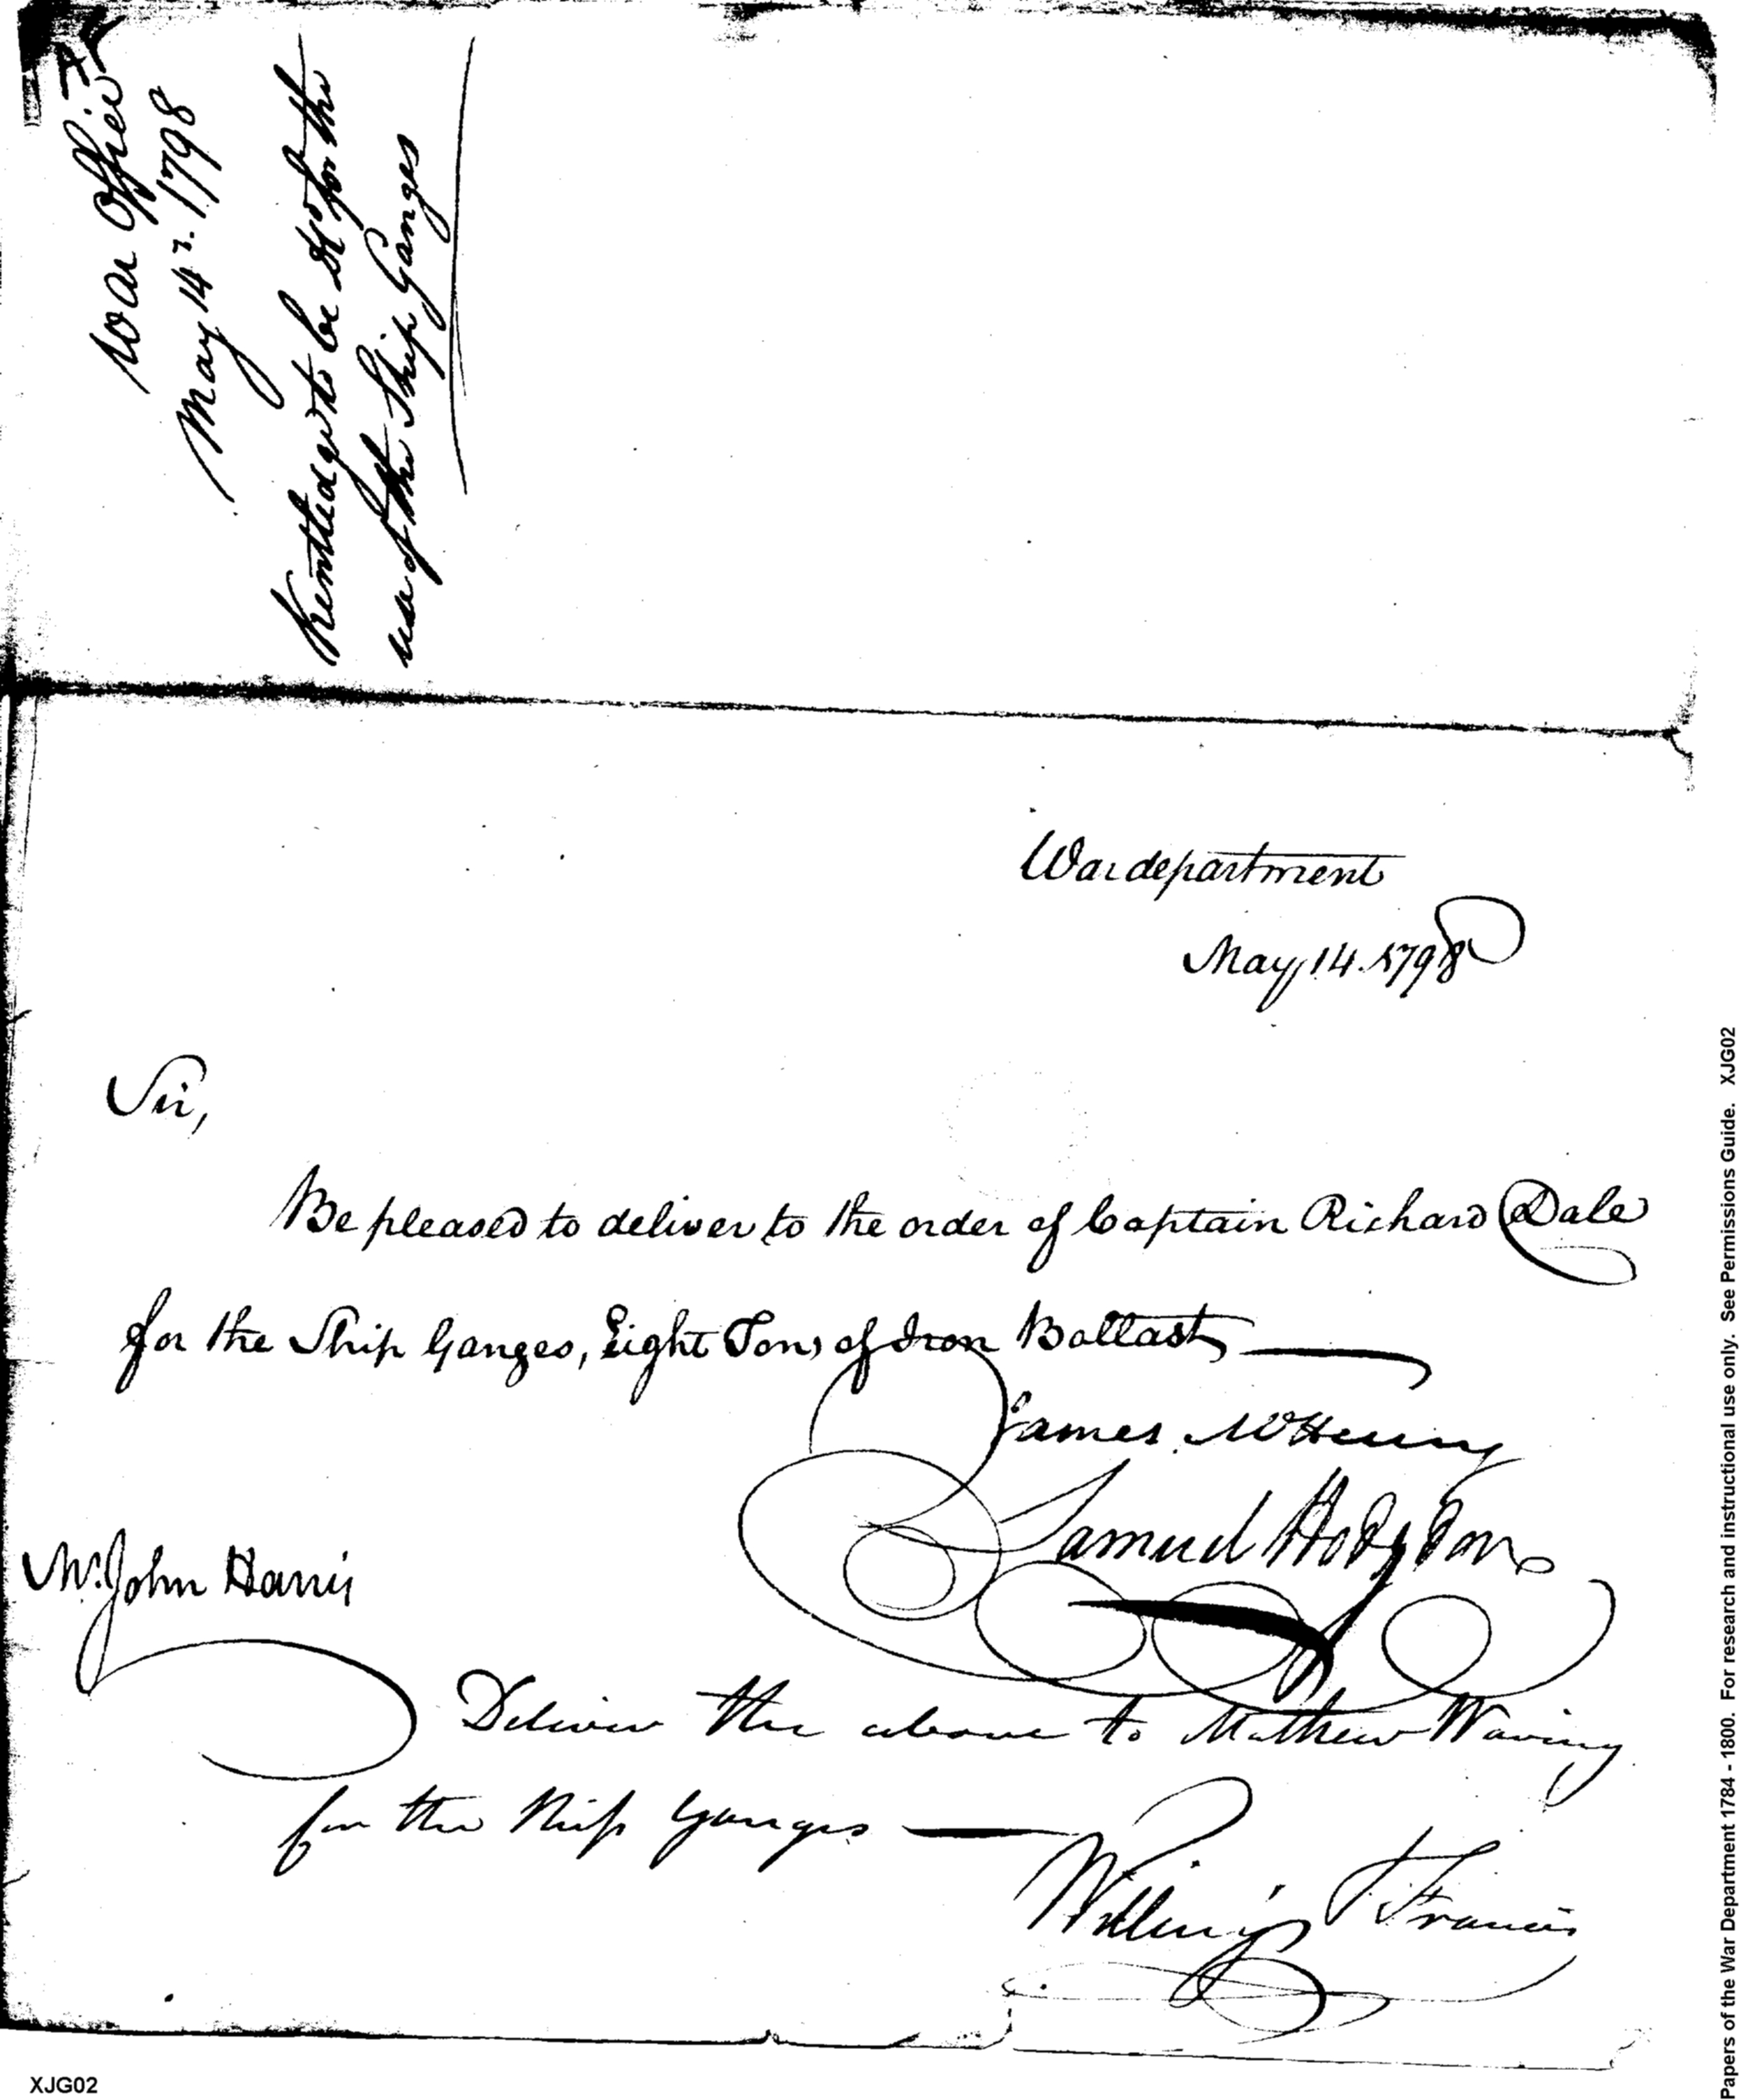 War Office
May 14th. 1798
Kentledge to be dd for the
use of the Ship Ganges
War department
May 14. 1798
Sir,
Be pleased to deliver to the order of Captain Richard Dale
for the Ship Ganges, Eight Tons of Iron Ballast
James McHenry
Samuel Hodgdon
Mr. John Harris
Deliver the above to Mathew Waring
for the Ship Ganges
Willings & Francis
XJG02
Papers of the War Department 1784 - 1800. For research and instructional use only. See Permissions Guide. XJG02